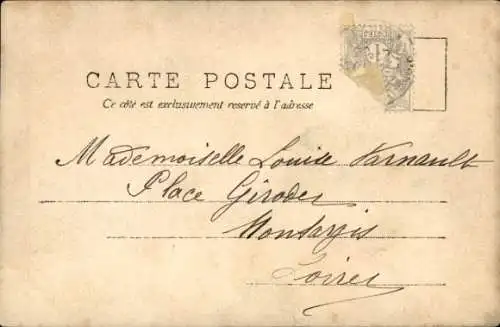 CARTE POSTALE
Ce côté est exclusivement reservé à l'adresse
Mademoiselle Louise Varnault
Place Girodet
Montargis
Loiret